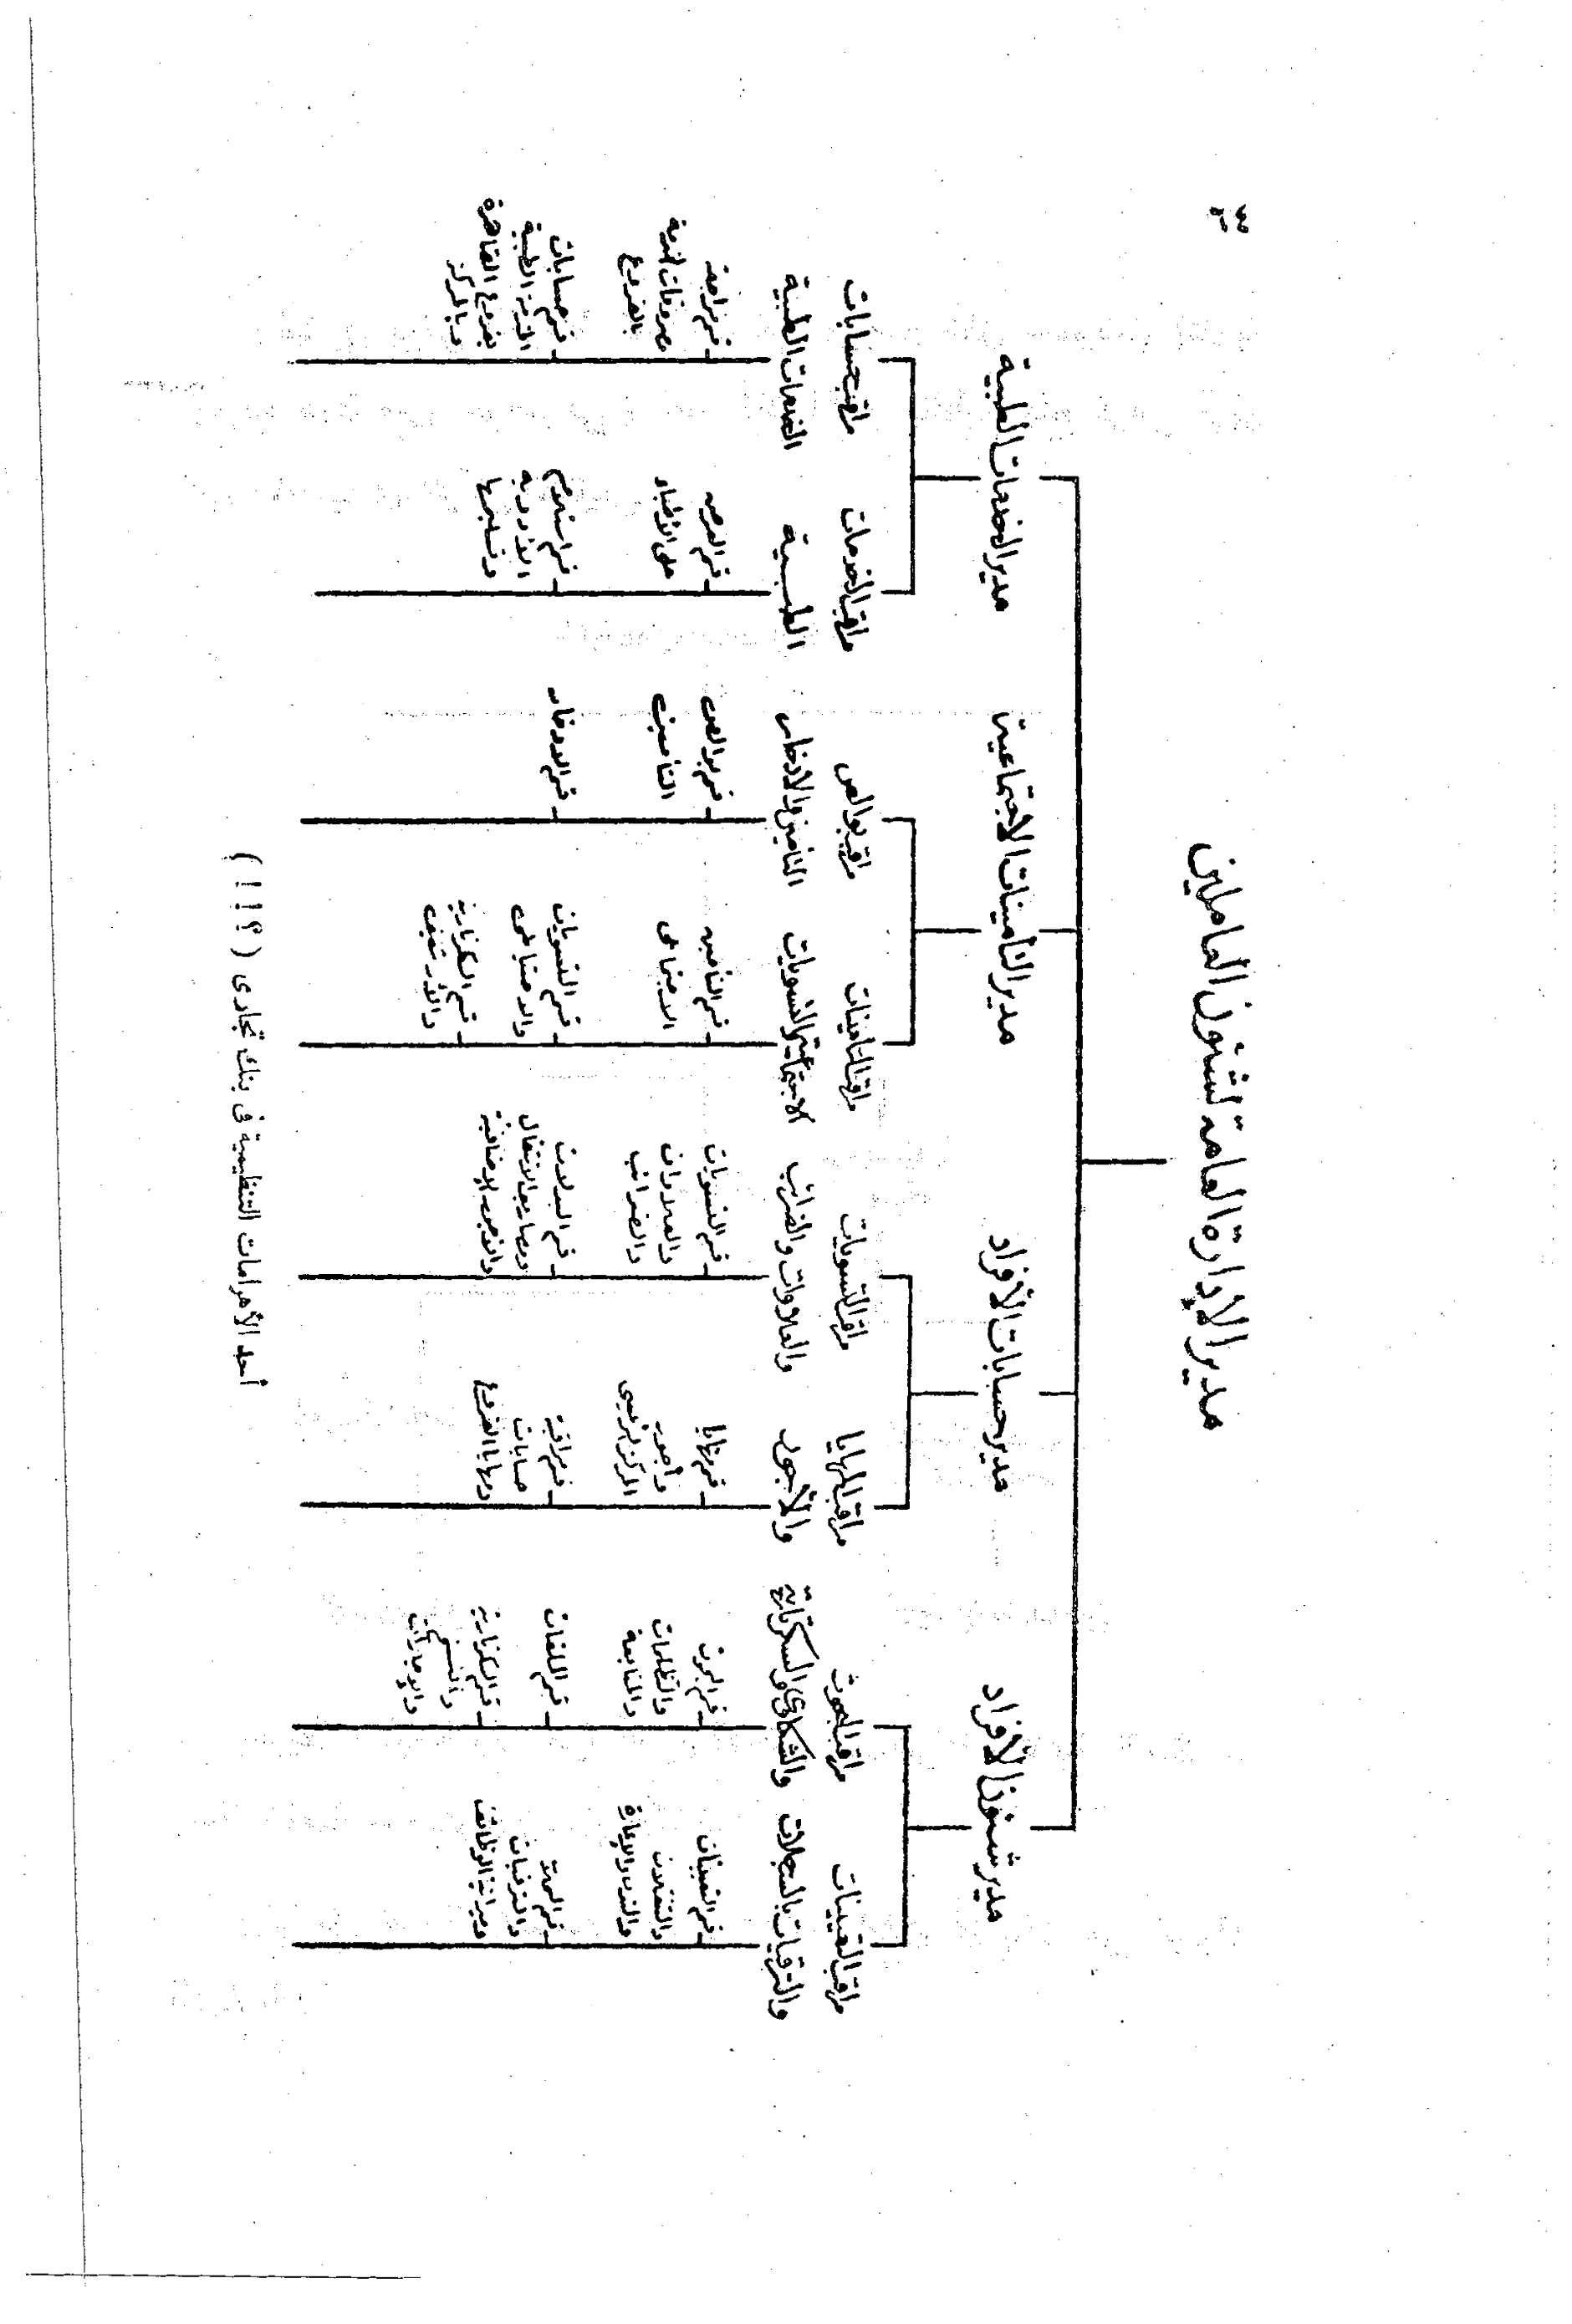 ٣٤
مدير الإدارة العامة لشئون العاملين
مدير شئون الأفراد
مدير حسابات الأفراد
مدير التأمينات الاجتماعية
مدير الخدمات الطبية
مراقب التعيينات
والترقيات والسجلات
مراقب البحوث
والشكاوى والسكرتارية
مراقب المهايا
والأجور
مراقب التسويات
والعلاوات والضرائب
مراقب التأمينات
الاجتماعية والتسويات
مراقب بوالص
التأمين والادخار
مراقب الخدمات
الطبية
مراقب حسابات
الخدمات الطبية
- قسم التعيينات
والتنقلات
والندب والإعارة
- قسم
والترقيات
وميزانية الوظائف
- قسم البحوث
والتظلمات
والمتابعة
- قسم الملفات
- قسم السكرتارية
والنسخ
والإجازات
- قسم مهايا
وأجور
المركز الرئيسى
- قسم مراقبة
حسابات
ومهايا الفروع
- قسم التسويات
والعلاوات
والضرائب
- قسم البدلات
ومصاريف الانتقال
والأجور الإضافية
- قسم التأمين
الاجتماعى
- قسم التسويات
- قسم السكرتارية
والأرشيف
- قسم بوالص
التأمين
- قسم الادخار
- قسم العرض
على الأطباء
- قسم استلام
الأدوية
وتسليمها
- قسم مراجعة
مصروفات
بالفروع
- قسم حسابات
الخدمة الطبية
بفروع القاهرة
وبالمركز
أحد الأهرامات التنظيمية فى بنك تجارى (؟!!)